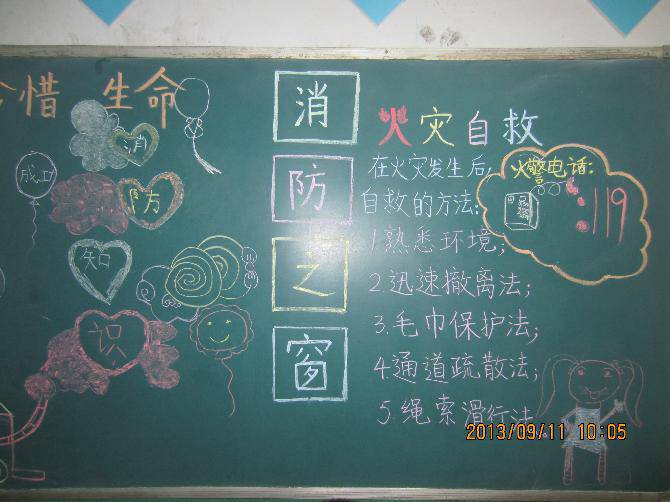 惜 生命
成功
消
防
知
识
消
防
之
窗
火灾自救
在火灾发生后,
自救的方法:
1.熟悉环境;
2.迅速撤离法;
3.毛巾保护法;
4.通道疏散法;
5.绳索滑行法
火警电话:
119
2013/09/11 10:05